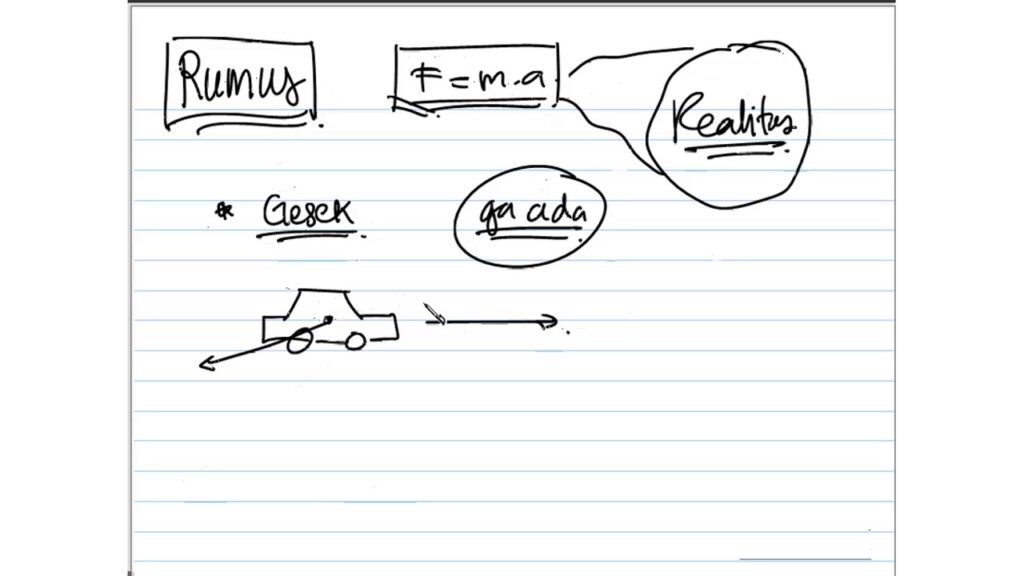 Rumus F = m.a. Realitas
* Gesek ga ada